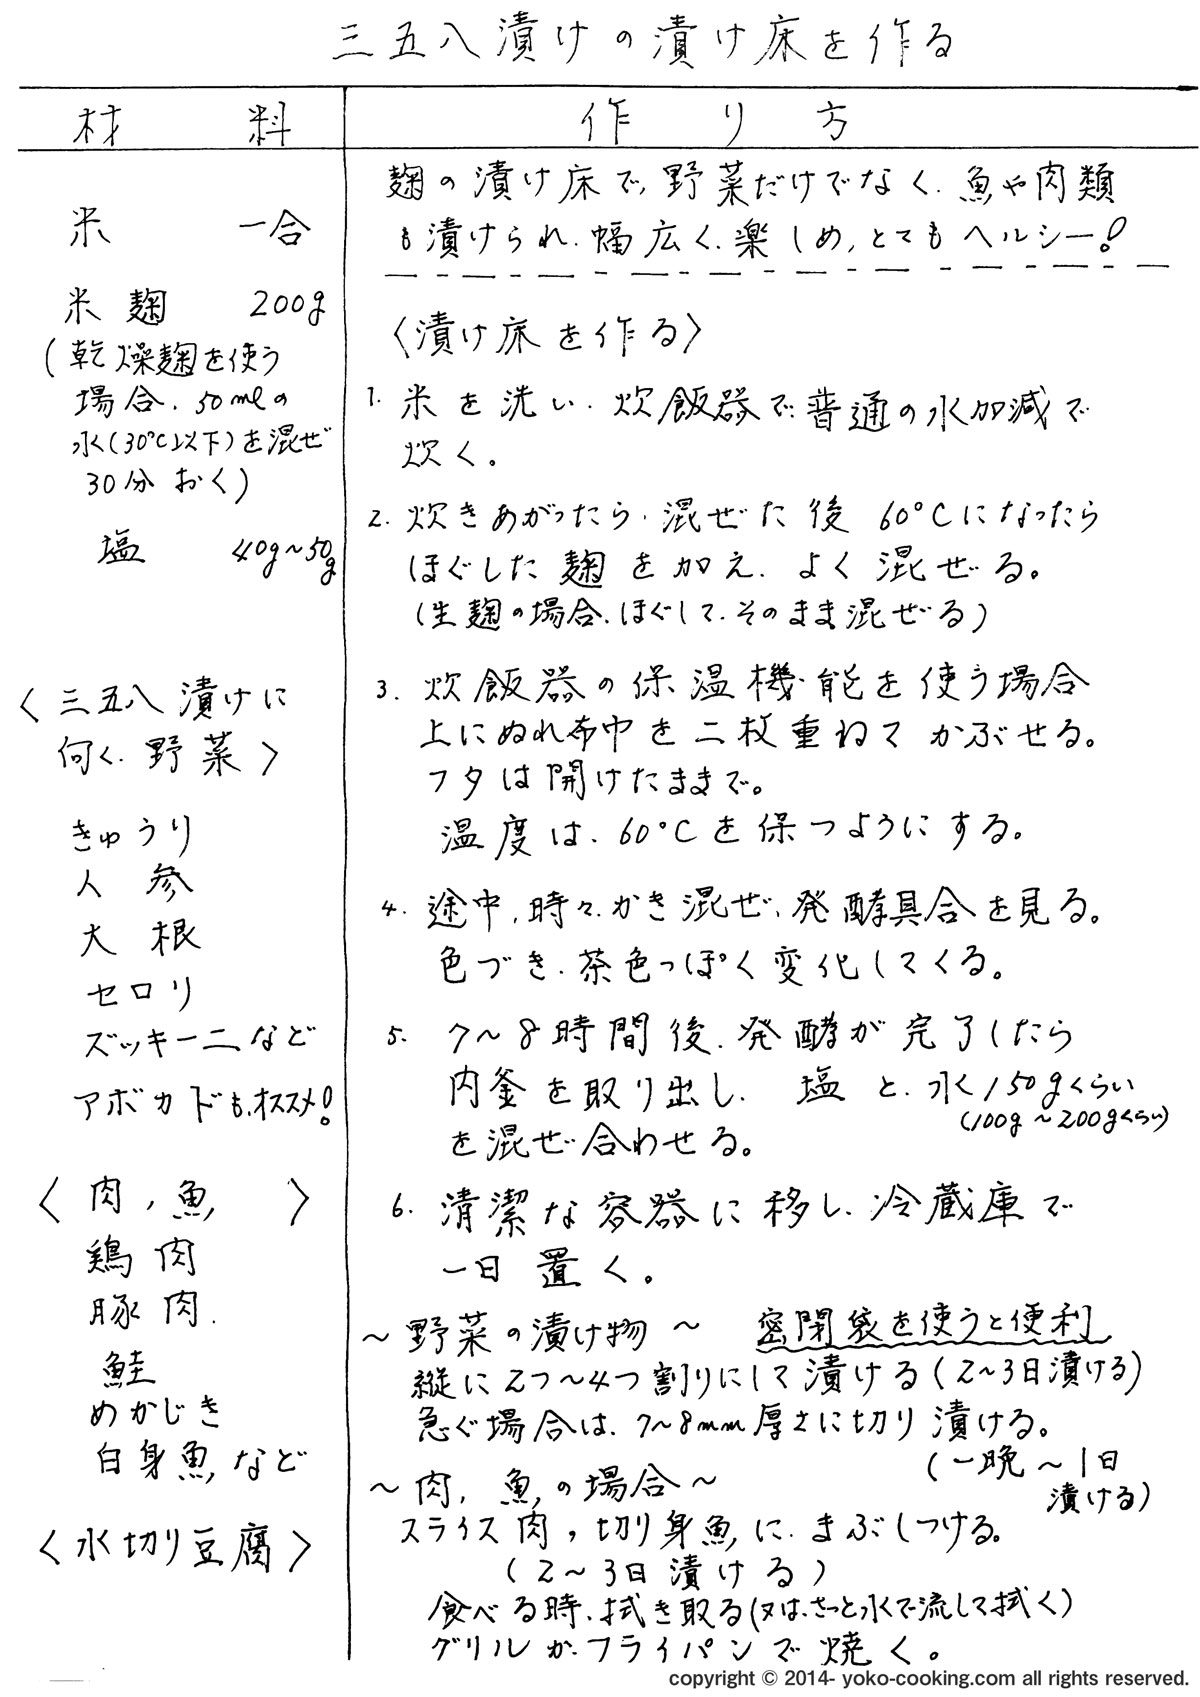 三五八漬けの漬け床を作る
材料
作り方
米 一合
米麹 200g
(乾燥麹を使う
場合、50mlの
水(30℃以下)を混ぜ
30分おく)
塩 40g~50g
〈三五八漬けに
向く、野菜〉
きゅうり
人参
大根
セロリ
ズッキーニなど
アボカドも、オススメ!
〈肉、魚〉
鶏肉
豚肉.
鮭
めかじき
白身魚など
〈水切り豆腐〉
麹の漬け床で、野菜だけでなく、魚や肉類
も漬けられ、幅広く、楽しめ、とてもヘルシー!
〈漬け床を作る〉
1. 米を洗い、炊飯器で、普通の水加減で
炊く。
2. 炊きあがったら、混ぜた後 60℃になったら
ほぐした麹を加え、よく混ぜる。
(生麹の場合、ほぐして、そのまま混ぜる)
3. 炊飯器の保温機能を使う場合
上にぬれ布巾を二枚重ねてかぶせる。
フタは開けたままで。
温度は、60℃を保つようにする。
4. 途中、時々、かき混ぜ、発酵具合を見る。
色づき、茶色っぽく変化してくる。
5. 7~8時間後、発酵が完了したら
内釜を取り出し、塩と、水150gくらい
(100g~200gくらい)
を混ぜ合わせる。
6. 清潔な容器に移し、冷蔵庫で
一日置く。
~野菜の漬け物~ 密閉袋を使うと便利
縦に2つ~4つ割りにして漬ける(2~3日漬ける)
急ぐ場合は、7~8mm厚さに切り漬ける。
(一晩~1日
漬ける)
~肉、魚、の場合~
スライス肉、切り身魚に、まぶしつける。
(2~3日漬ける)
食べる時、拭き取る(又は、さっと水で流して拭く)
グリルか、フライパンで焼く。
copyright © 2014- yoko-cooking.com all rights reserved.